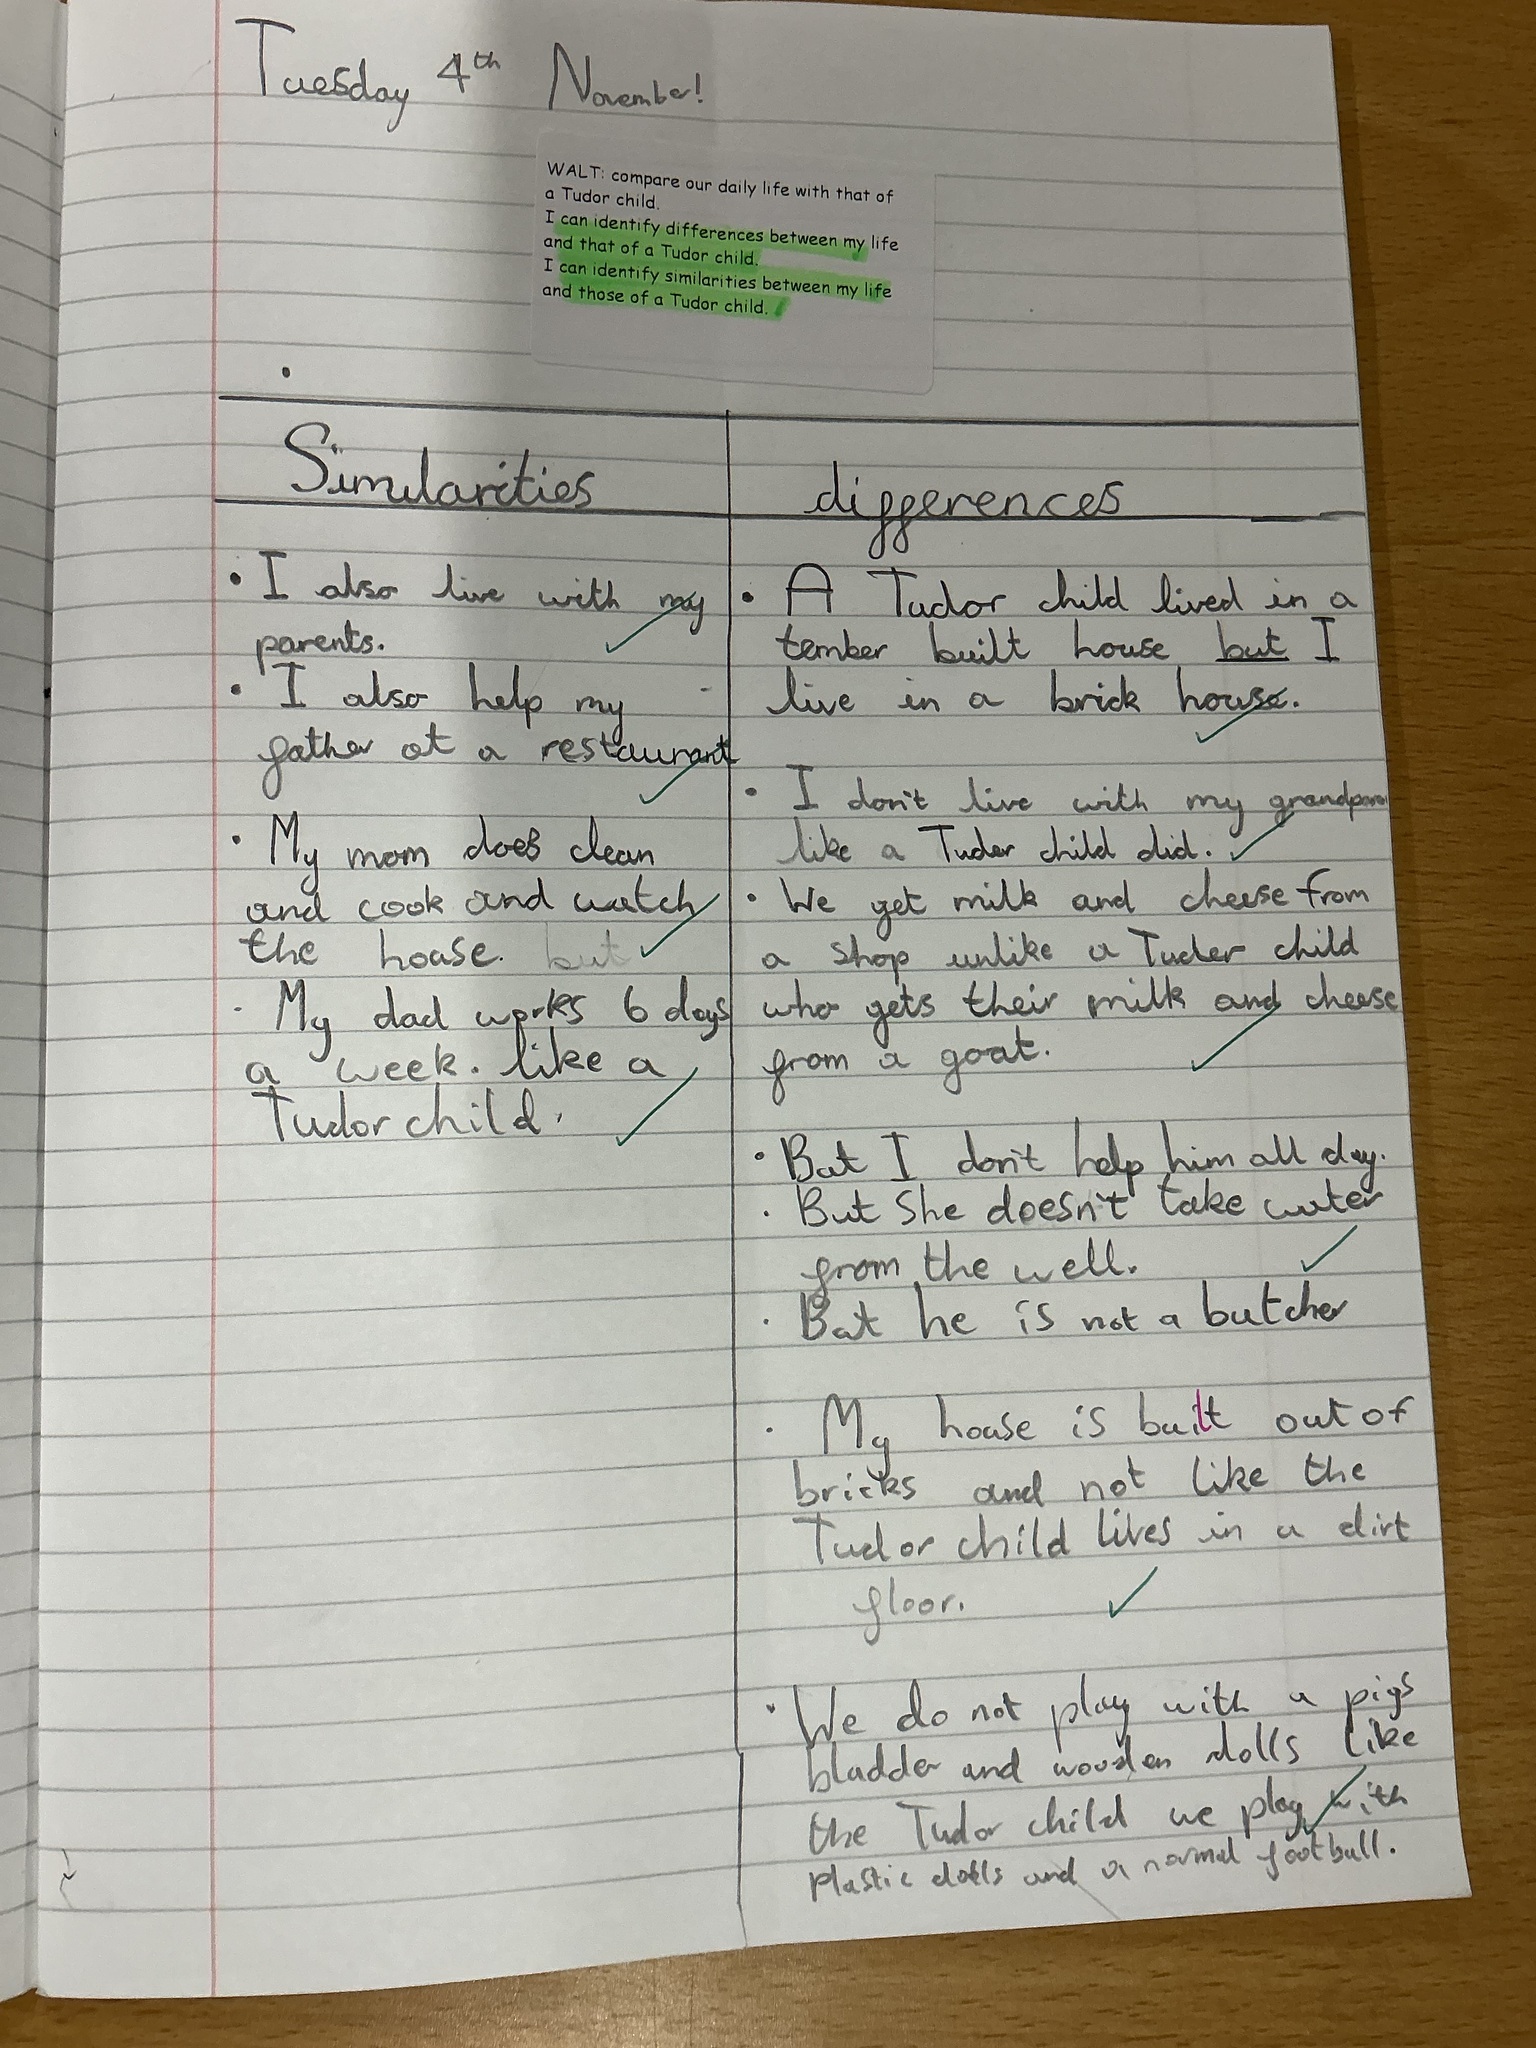 Tuesday 4th November!
WALT: compare our daily life with that of
a Tudor child.
I can identify differences between my life
and that of a Tudor child.
I can identify similarities between my life
and those of a Tudor child.
Similarities
differences
• I also live with my
parents.
• I also help my
father at a restaurant
• My mom does clean
and cook and watch
the house. but
• My dad works 6 days
a week. like a
Tudor child.
• A Tudor child lived in a
tember built house but I
live in a brick house.
• I don't live with my
like a Tuder child did.
• We get milk and cheese from
a shop unlike a Tuder child
who gets their milk and cheese
from a goat.
• But I don't help him all day.
• But She doesn't take water
from the well.
• But he is not a butcher
• My house is built out of
bricks and not like the
Tudor child lives in a dirt
floor.
• We do not play with a pigs
bladder and wooden dolls like
the Tudor child we play with
plastic dolls and a normal football.